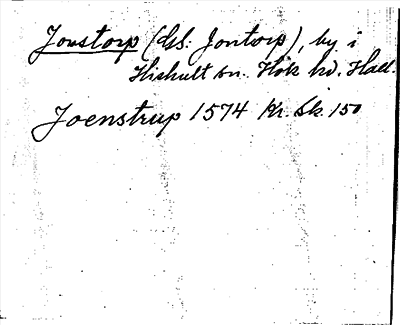 Jonstorp (GS: Jontorp), by i
Hishult sn. Hök hd. Hall.
Joenstrup 1574 Kr. Sk. 150